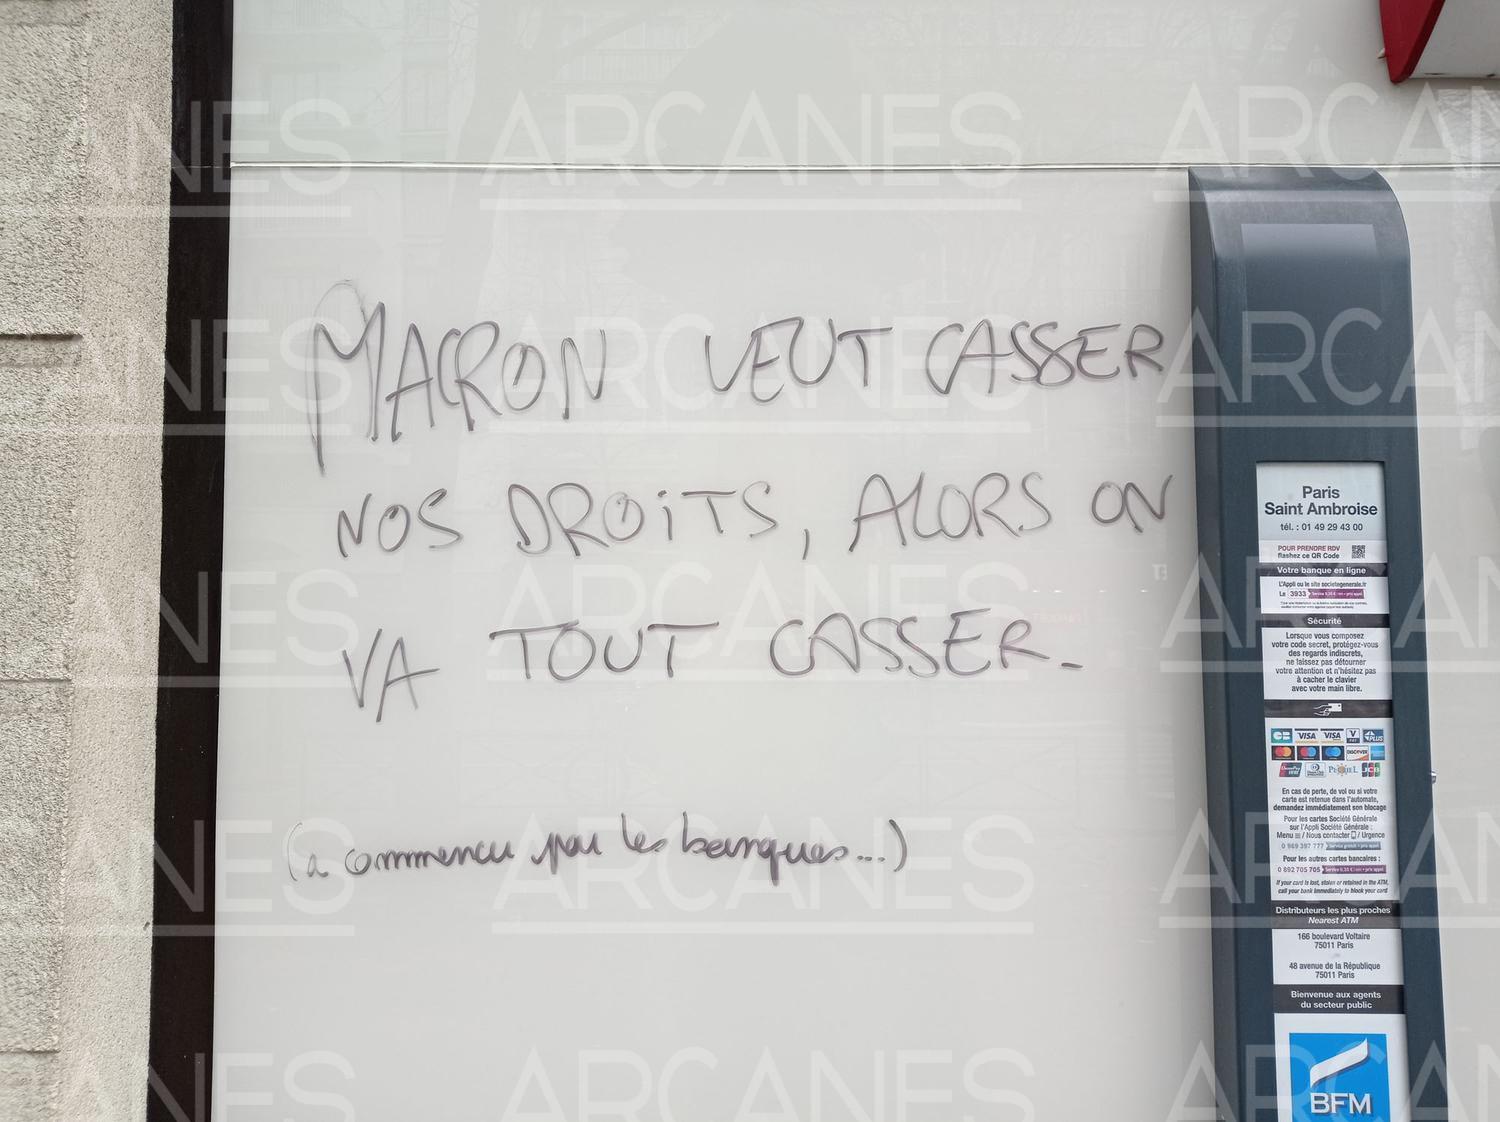 MACRON VEUT CASSER
NOS DROITS, ALORS ON
VA TOUT CASSER.
(a commencer par les banques...)
Paris
Saint Ambroise
tél. : 01 49 29 43 00
POUR PRENDRE RDV
flashez ce QR Code
Votre banque en ligne
L'Appli ou le site societegenerale.fr
Le 3933 Service 0,30 € / min + prix appel
Sécurité
Lorsque vous composez
votre code secret, protégez-vous
des regards indiscrets,
ne laissez pas détourner
votre attention et n'hésitez pas
à cacher le clavier
avec votre main libre.
CB VISA VISA V PAY PLUS
DISCOVER
JCB
En cas de perte, de vol ou si votre
carte est retenue dans l'automate,
demandez immédiatement son blocage
Pour les cartes Société Générale
sur l'Appli Société Générale :
Menu / Nous contacter / Urgence
0 969 397 777 Service gratuit + prix appel
Pour les autres cartes bancaires :
0 892 705 705 Service 0,35 € / min + prix appel
If your card is lost, stolen or retained in the ATM,
call your bank immediately to block your card
Distributeurs les plus proches
Nearest ATM
166 boulevard Voltaire
75011 Paris
48 avenue de la République
75011 Paris
Bienvenue aux agents
du secteur public
BFM
ARCANES